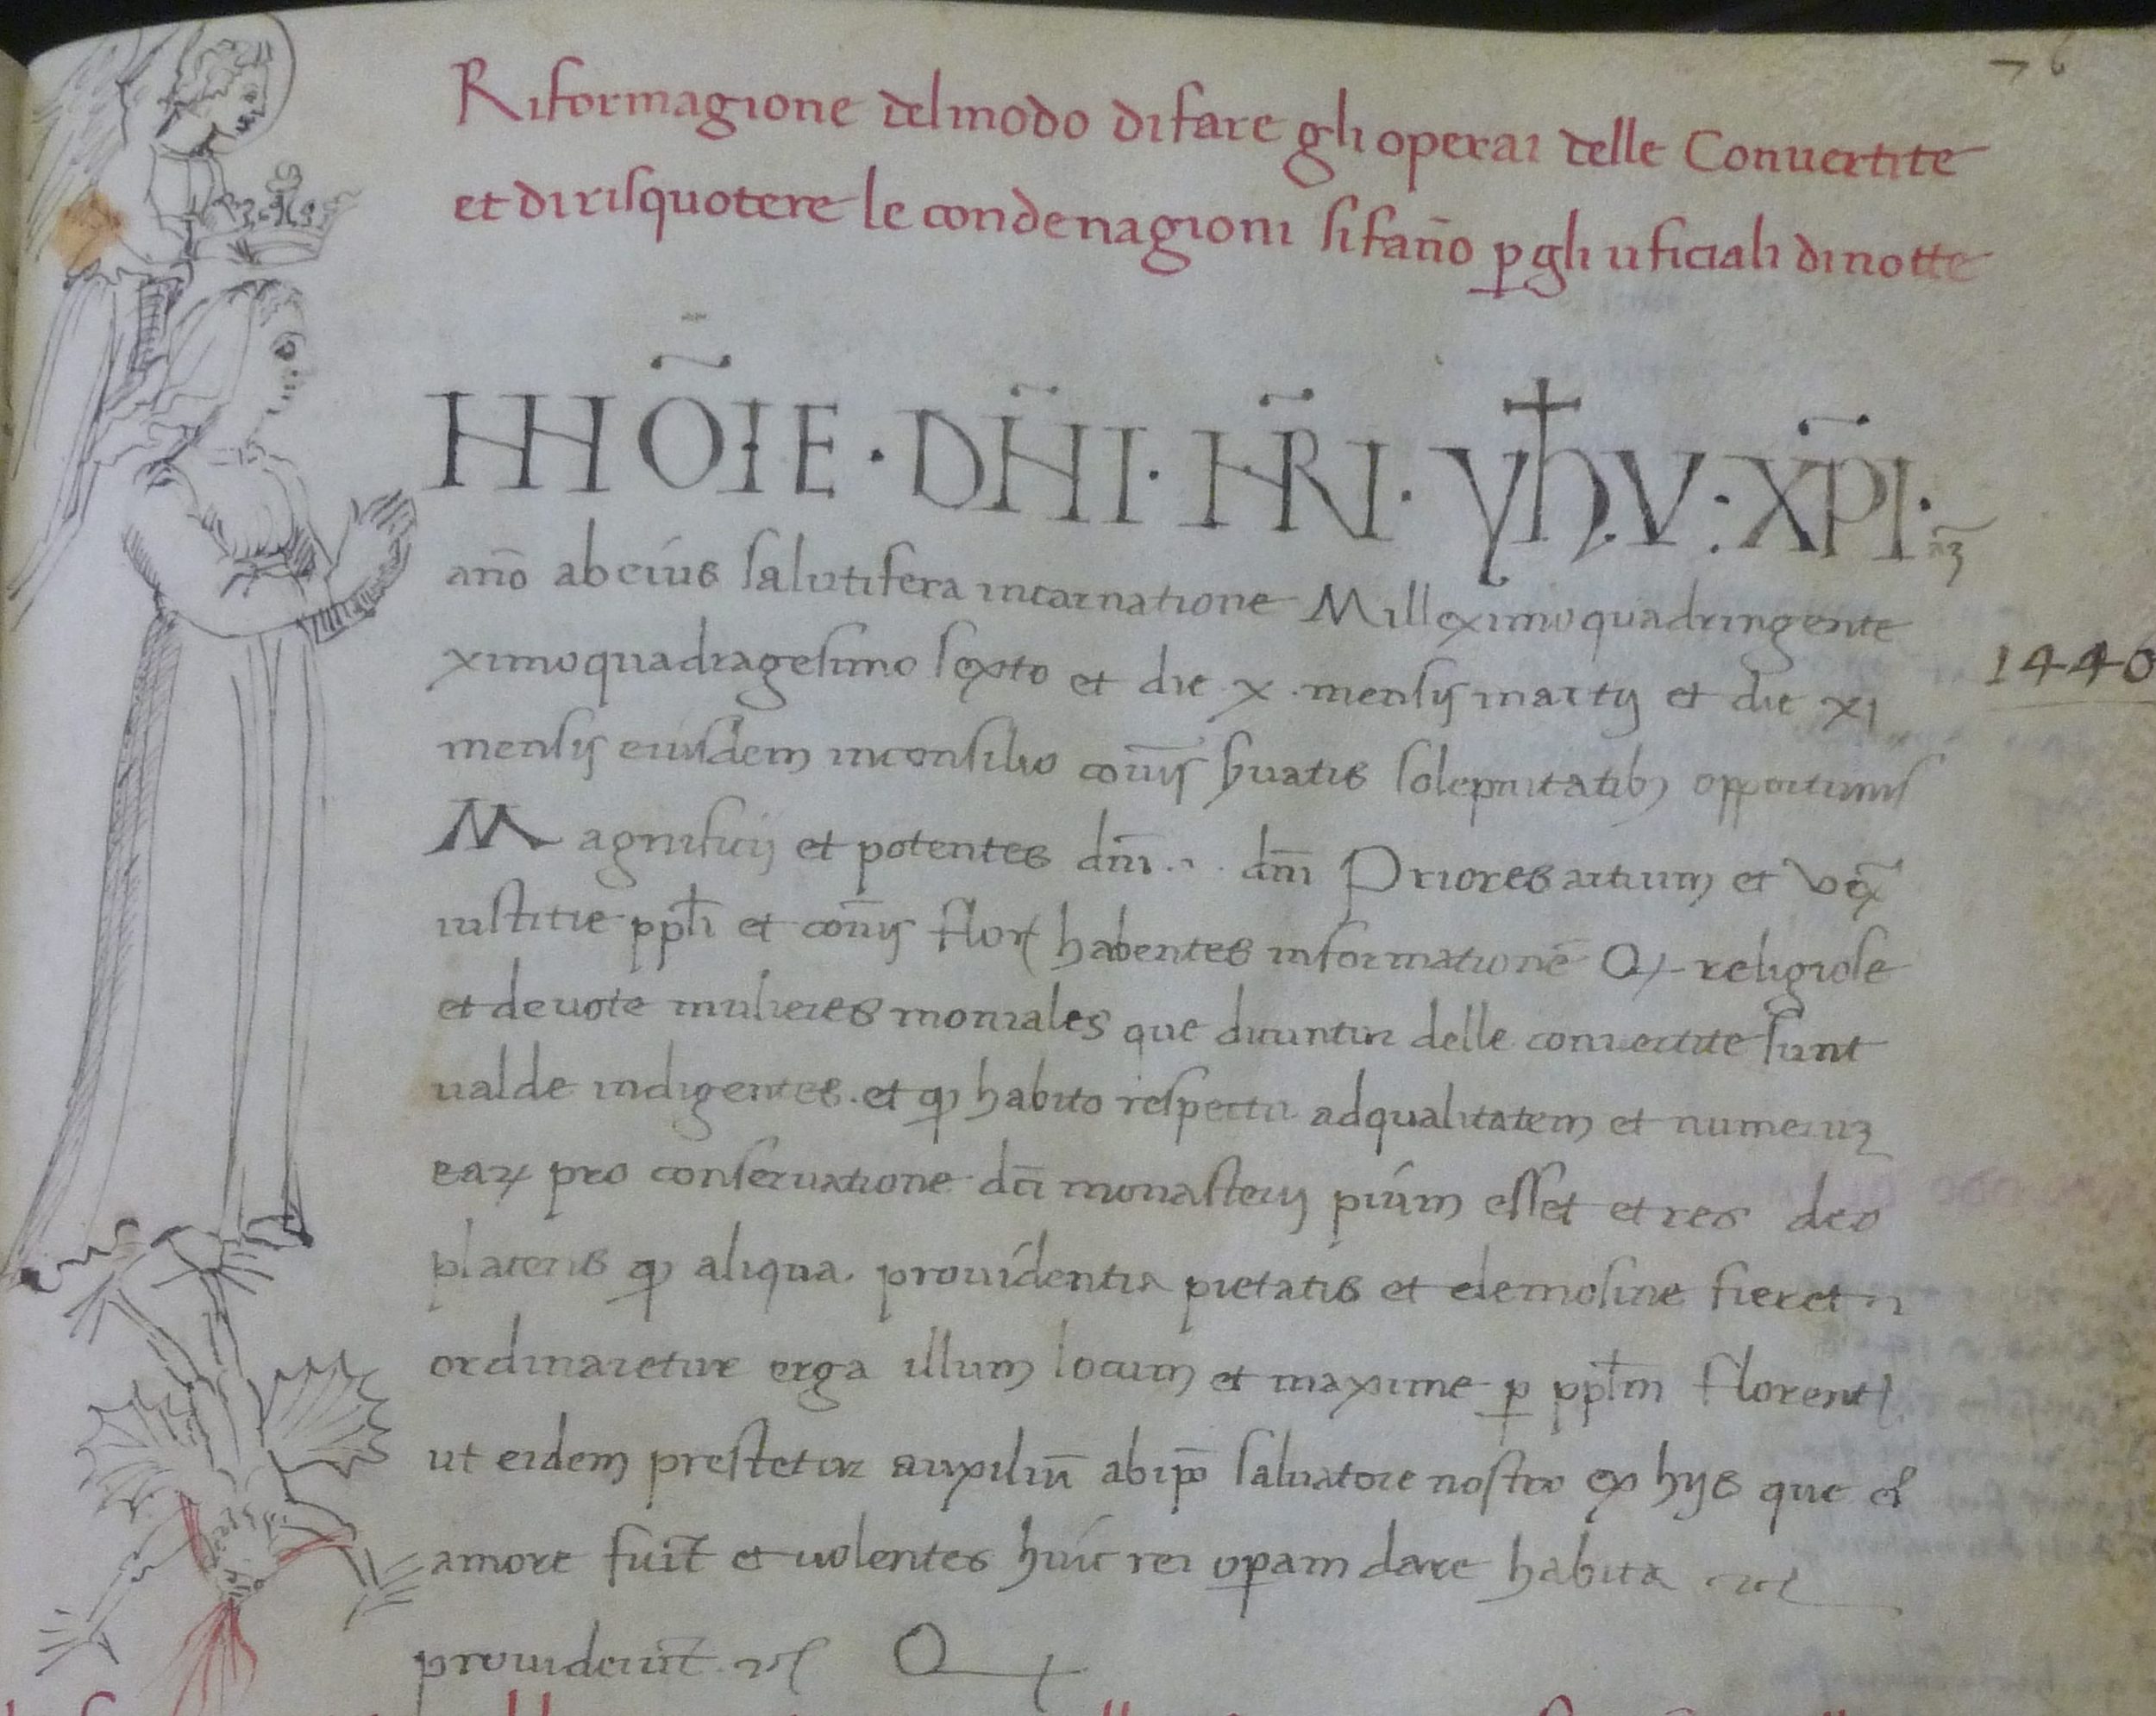 76
Riformagione del modo di fare gli operai delle Convertite
et di risquotere le condenagioni si fan̄o ꝑ gli uficiali di notte
IN NO͂IE · DN͂I · NR͂I · YħV : XP͂I ·
an̄o ab eius salutifera incarnatione Milleximo quadringente
ximo quadragesimo sexto et die x mensis martij et die xi
1440
mensis eiusdem in consilio cōis ẜuatis solepnitatibꝫ opportunis
Magnificij et potentes dn̄i .. dn̄i Priores artium et vex͂
iustitie ppłi et cōis flor habentes informationē Q religiose
et devote mulieres moniales que dicuntur delle convertite sunt
ualde indigentes. et ꝙ habito respectu ad qualitatem et numeruꝫ
eaꝝ pro conservatione dc̄i monasterij pium esset et res deo
placens ꝙ aliqua providentia pietatis et elemosine fieret et
ordinaretur erga illum locum et maxime ꝑ ppłm florent
ut eidem prestetur auxiliū ab ip̄o salvatore nostro ex hijs que ei
amore fuīt et volentes huic rei oꝑam dare habita
providerūt